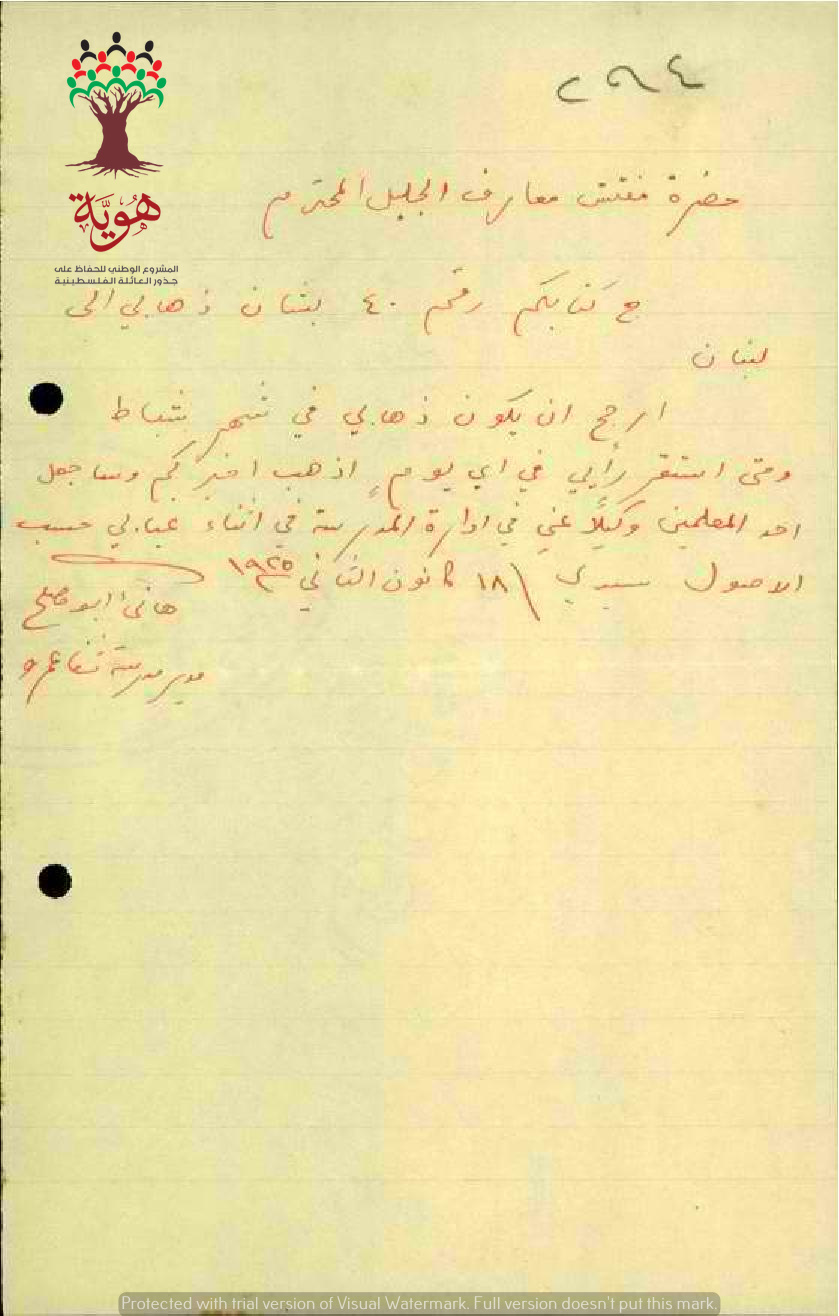 هويّة
المشروع الوطني للحفاظ على
جذور العائلة الفلسطينية
٢٩٤
حضرة مفتش معارف الجليل المحترم
ج كتابكم رقم ٤٠ بشان ذهابي الى
لبنان
ارجح ان يكون ذهابي في شهر شباط
ومتى استقر رأيي في اي يومٍ اذهب اخبركم وساجعل
احد المعلمين وكيلاً عني في ادارة المدرسة في اثناء غيابي حسب
الاصول سيدي ١٨ كانون الثاني ١٩٢٥
هانئ ابو مصلح
مدير مدرسة شفاعمرو
Protected with trial version of Visual Watermark. Full version doesn't put this mark.